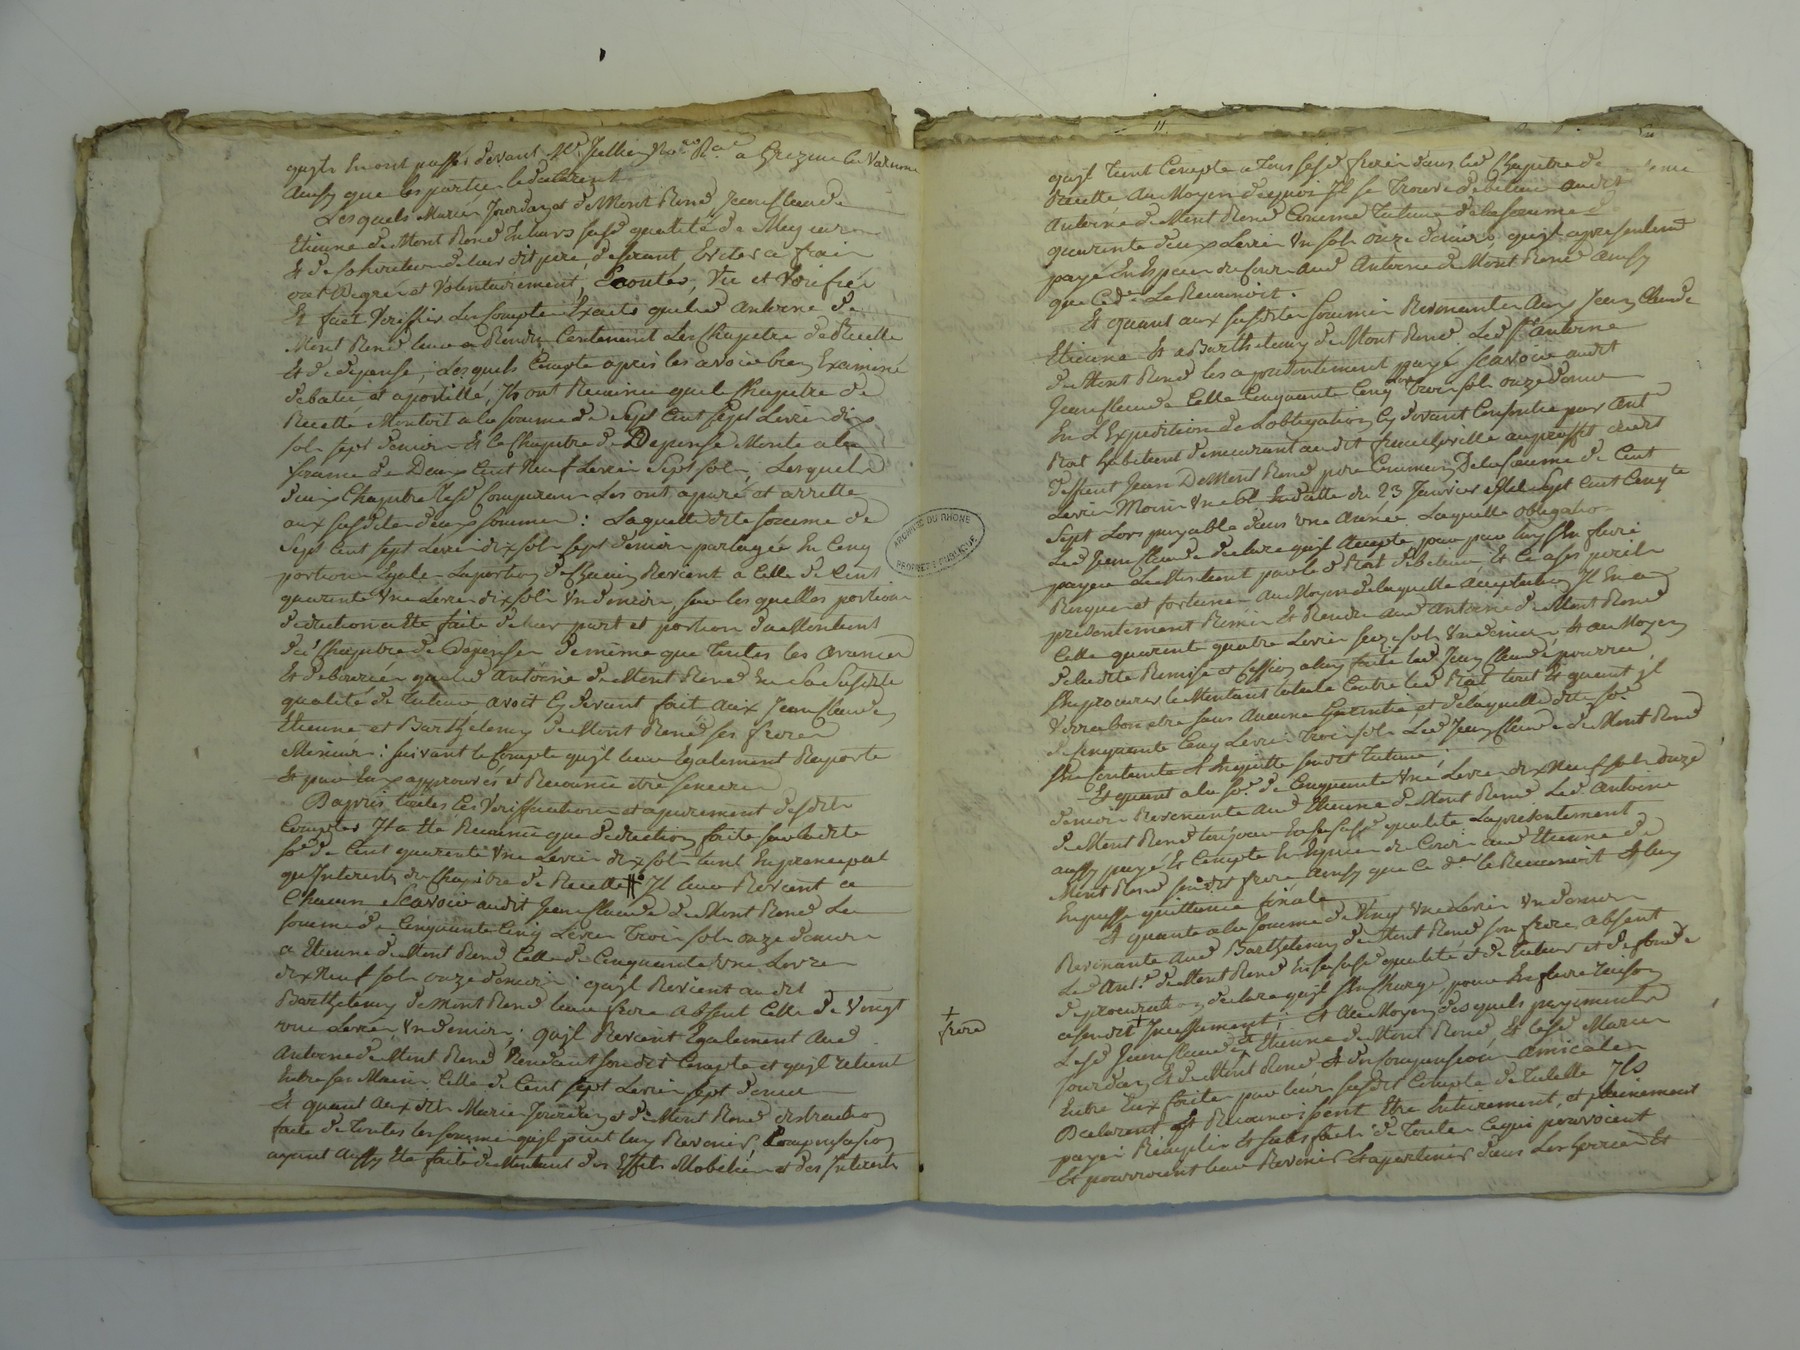 qu'ils en ont passés devant Me Jullien No.re R.al a Grezieu la Varenne
Aussy que les parties le declarent
Lesquels Marie Jourdan et de Mont Rond, Jean Claude
Etienne de Mont Rond Tuteurs susd. qualité de Majeurs
Et de cohéritiers de leur dit pere, deferant Eviter a frais
ont Degré et Volontairement, Ecoutés, Vu et Vérifiés
Et fait Veriffier Les Comptes Exacts que led. Antoine de
Mont Rond leur a Rendu Contenant Les Chapitre de Recette
Et de dépense, Lesquels Compte après les avoir bien Examiné
debatu et apostillé, Ils ont Reconnu que le Chapitre de
Recette Montoit a la somme de Sept Cent sept Livres dix
sols sept deniers Et le Chapitre de Depense Monte a la
somme de Deux Cent Neuf Livres Sept sols, Lesquels
deux Chapitre Lesd. Comparans Les ont apuré et arretté
aux susdites deux sommes : Laquelle dite somme de
Sept Cent sept Livres dix sols sept deniers partagée En Cinq
portions Egales La portion de Chacun Revient a Celle de Cent
quarente une Livres dix sols un denier, sur lesquelles portions
deduction a Eté faite de leur part et portion du Montant
dud. Chapitre de Dépenses de même que toutes les avances
Et debourcés que led. Antoine de Mont Rond En sa Susdite
qualité de Tuteur avoit Cy devant fait aux Jean Claude
Etienne et Barthelemy de Mont Rond ses freres
Mineurs : suivant le Compte qu'il leur Egalement Raporté
Et par Eux approuvés et Reconnu être sincere
D'après toutes les Veriffications et apurement desdits
Comptes Il a Eté Reconnu que deduction faite sur ladite
sé. de Cent quarente une Livres dix sols tant En principal
qu'Interests du Chapitre de Recette # Il leur Revient a
Chacun Scavoir audit Jean Claude de Mont Rond La
somme de Cinquante Cinq Livres Trois sols onze deniers
a Etienne de Mont Rond Celle de Cinquante une Livres
dix Neuf sols onze deniers : qu'il Revient audit
Barthelemy de Mont Rond leur frere absent Celle de Vingt
une Livres, un denier ; qu'il Revient Egalement Aud.
Antoine de Mont Rond Rendant son dit Compte et qu'il retient
Entre ses Mains Celle de Cent sept Livres sept deniers
Et quant aux dits Marie Jourdan et de Mont Rond distraction
faite de toutes les sommes qu'il peut leur Revenir, Compensation
ayant Aussy Eté faite du Montant des Effets Mobiliers et des Interets
11
qu'il Tient Compte a tous sesd. freres dans led. Chapitre de
Recette Au Moyen de quoi Il se Trouve débiteur audit
Antoine de Mont Rond Comme Tuteur de la somme de
quarente deux Livres un sols onze deniers, qu'il a presentement
payé En Espèces du Cours Aud. Antoine de Mont Rond Aussy
que Ce d.er Le Reconnoit.
Et quant aux susdites sommes Revenantes Aux Jean Claude
Etienne Et a Barthelemy de Mont Rond Led. S.r Antoine
de Mont Rond les a presentement payé Scavoir audit
Jean Claude Celle Cinquante Cinq Livres Trois sols onze deniers
En L'Expedition de L'obligation Cy devant Consentie par Ant.
Rat habitant demeurant audit Francheville au proffit dudit
deffunt Jean De Mont Rond pere Commun De la somme de Cent
Livres Moins une En datte du 23 Janvier Mil Sept Cent Cinq.te
Sept Lors payable dans une année. Laquelle obligation
Led. Jean Claude declare qu'il Accepte pour par luy s'En faire
payer Le Montant par led. Rat débiteur Et Ce a ses perils
Risques et fortunes Au Moyen de laquelle Acceptation Il En a
presentement Remis Et Rendu Aud. Antoine de Mont Rond
Celle quarente quatre Livres seize sols un denier, Et au Moyen
de ladite Remise et Cession a luy faite led. Jean Claude pourra
s'En procurer le Montant total Contre led. Rat tout Et quant il
Verra bon etre sans Aucune Garentie, et de laquelle dite so.e
de Cinquante Cinq Livres Trois sols Led. Jean Claude de Mont Rond
s'En Contente Et En quitte son dit Tuteur.
Et quant a la so.e de Cinquante une Livres dix Neuf sols onze
deniers Revenante Aud. Etienne de Mont Rond Led. Antoine
de Mont Rond toujours En sa susd. qualité La presentement
aussy payé Et Compté En Espèces du Cours aud. Etienne de
Mont Rond son dit frere Aussy que Ce d.er le Reconnoit Et luy
En passe quittance finale
Et quante a la somme de Vingt une Livres un denier
Revenante Aud. Barthelemy de Mont Rond son frere absent
Led. Ant. de Mont Rond En sa susd. qualité et de Tuteur et de fondé
de procuration declare qu'il s'En Charge, pour En faire Raison
a son dit + Incessamment, Et Au Moyen desquels payements
+
frere
Lesd. Jean Claude et Etienne de Mont Rond Et lesd. Marie
Jourdan Et de Mont Rond Et du Compensation amicales
Entre Eux faites pour leurs susdit Compte de Tutelle Ils
Declarent Et Reconnoissent Etre Entierement et pleinement
payés Remplis Et satisfait de toutes Ce qui pouvoient
Et pourroient leur Revenir Et apartenir dans Les hoiries Et
ARCHIVES DU RHONE
PROPRIETE PUBLIQUE